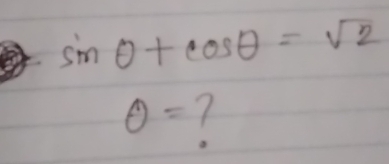 sin θ + cosθ = √2
θ = ?